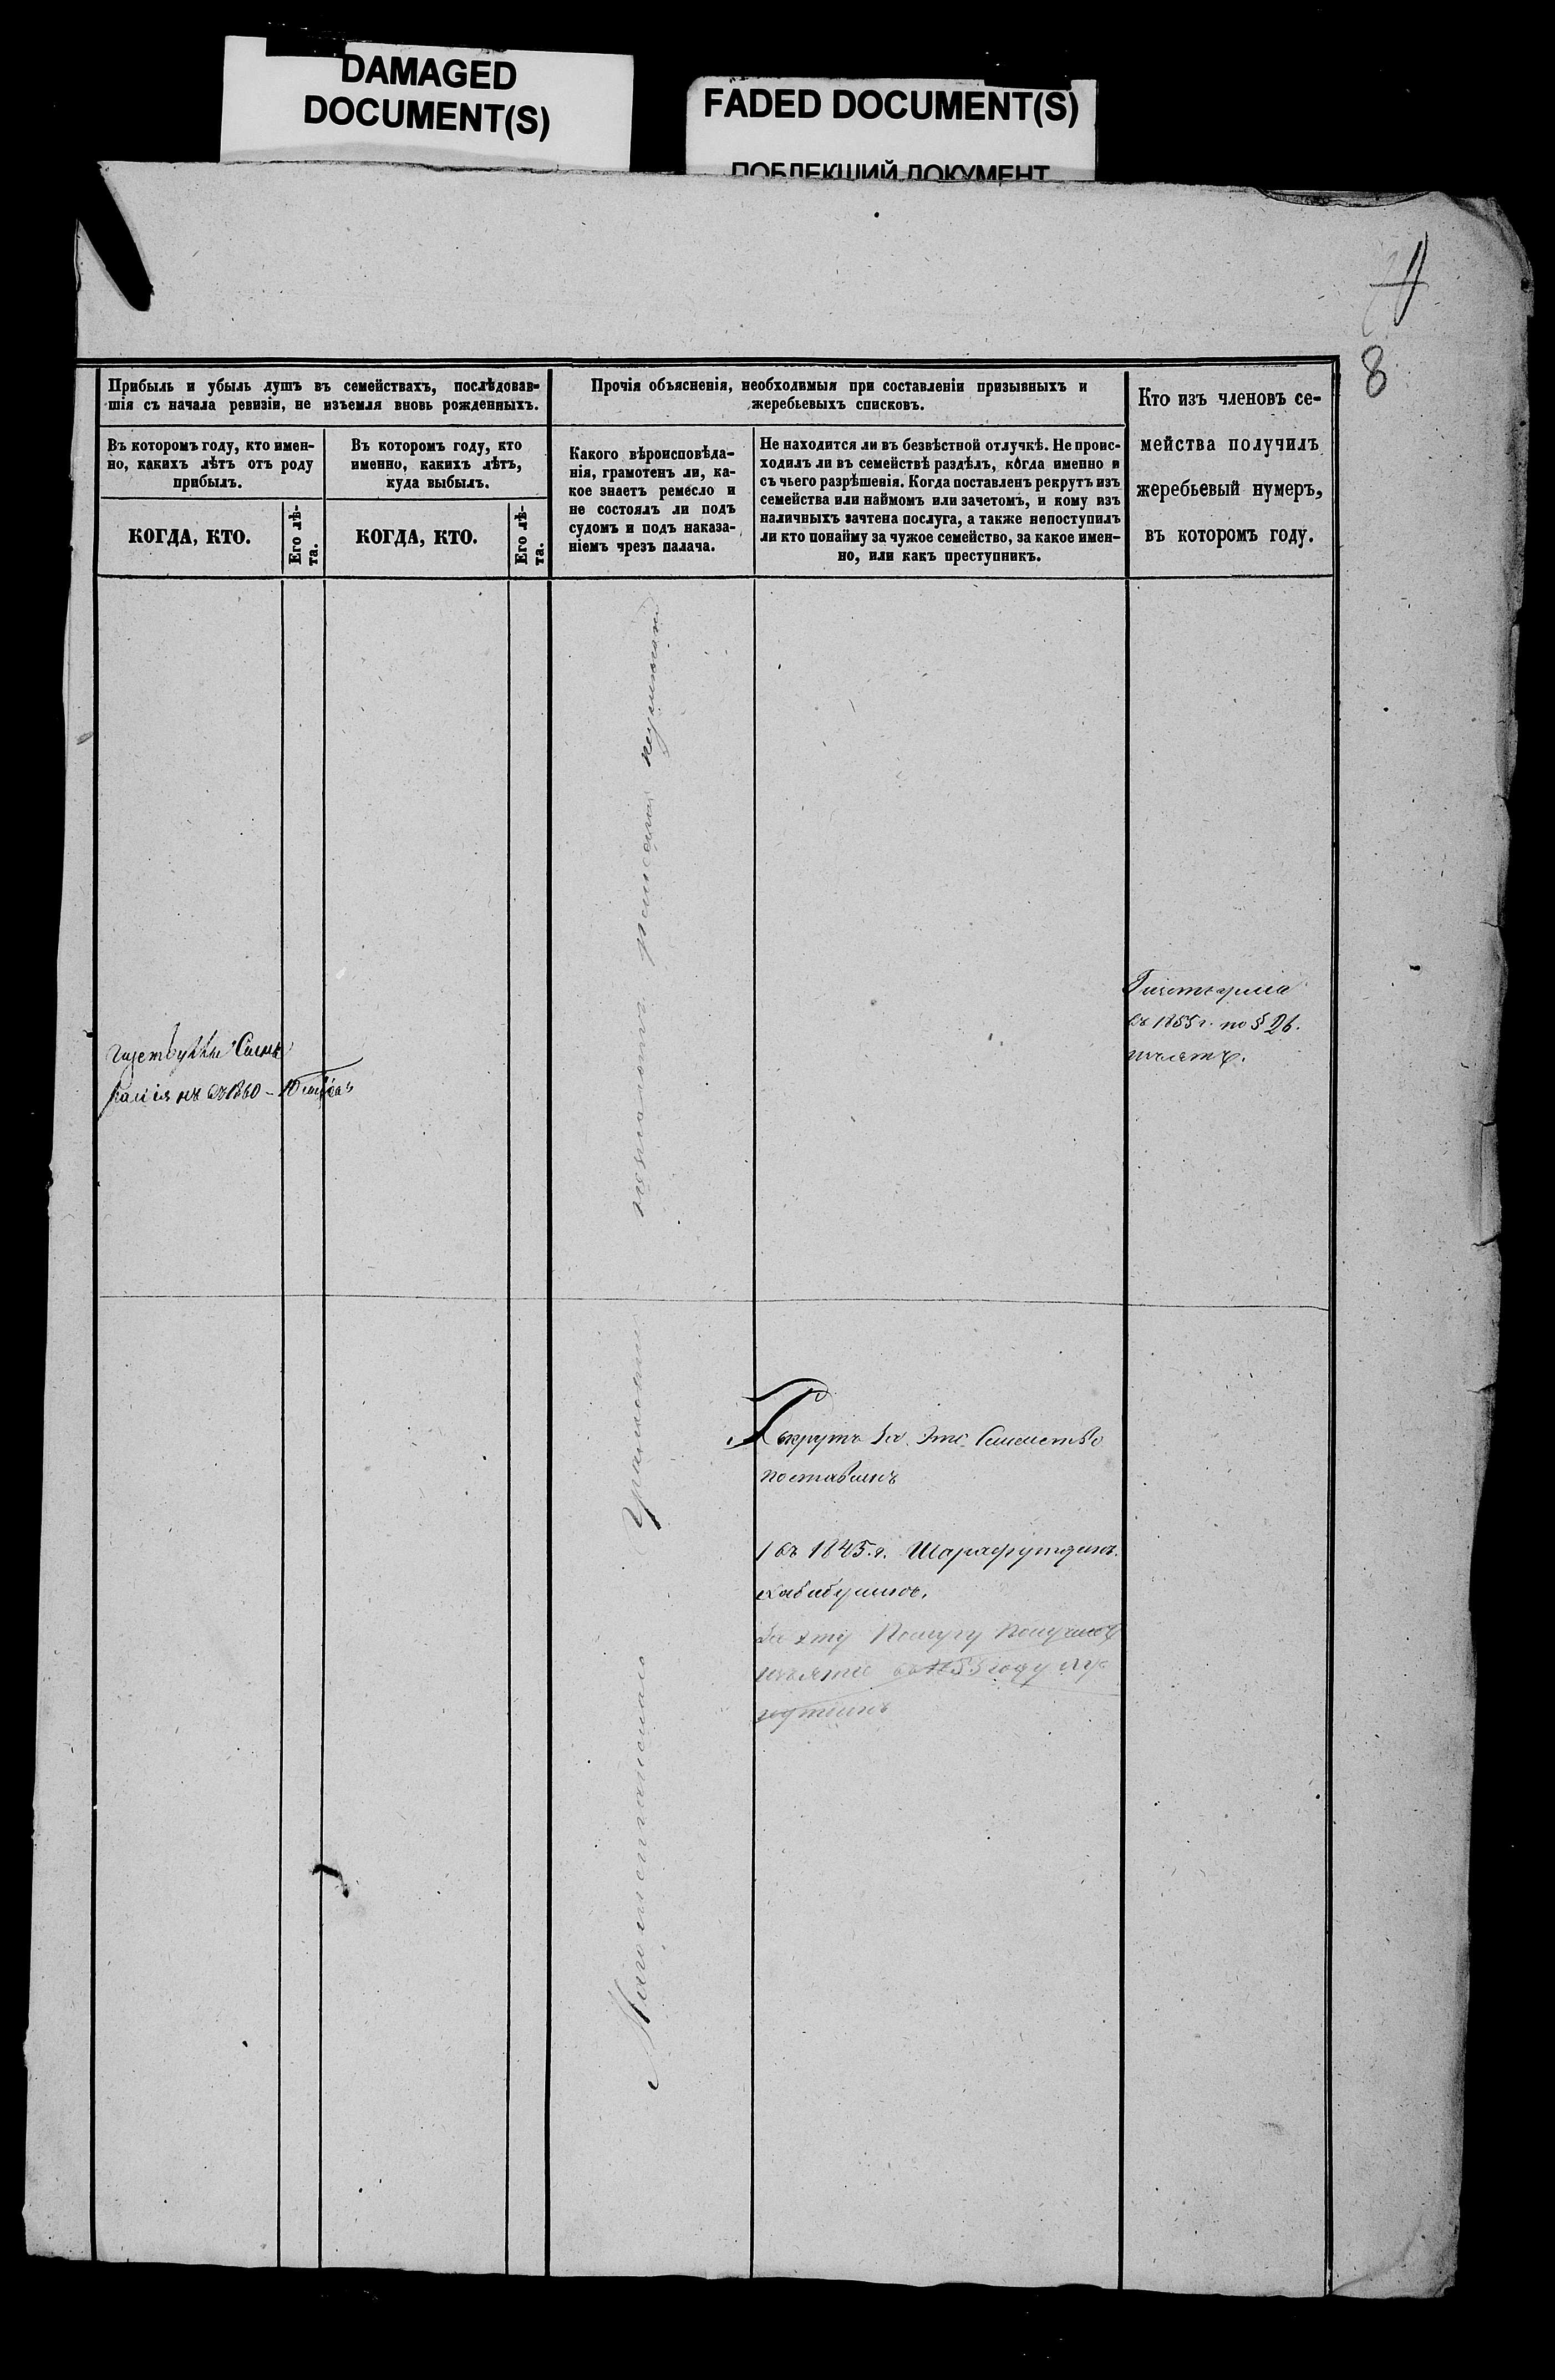 DAMAGED
DOCUMENT(S)
FADED DOCUMENT(S)
ПОБЛЕКШИЙ ДОКУМЕНТ
8
Прибыль и убыль душъ въ семействахъ, послѣдовав-
шія съ начала ревизіи, не изъемля вновь рожденныхъ.
Въ которомъ году, кто имен-
но, какихъ лѣтъ отъ роду
прибылъ.
КОГДА, КТО.
Его лѣ-
та.
Въ которомъ году, кто
именно, какихъ лѣтъ,
куда выбылъ.
КОГДА, КТО.
Его лѣ-
та.
Прочія объясненія, необходимыя при составленіи призывныхъ и
жеребьевыхъ списковъ.
Какого вѣроисповѣда-
нія, грамотенъ ли, ка-
кое знаетъ ремесло и
не состоялъ ли подъ
судомъ и подъ наказа-
ніемъ чрезъ палача.
Не находится ли въ безвѣстной отлучкѣ. Не проис-
ходилъ ли въ семействѣ раздѣлъ, когда именно и
съ чьего разрѣшенія. Когда поставленъ рекрутъ изъ
семейства или наймомъ или зачетомъ, и кому изъ
наличныхъ зачтена послуга, а также непоступилъ
ли кто понайму за чужое семейство, за какое имен-
но, или какъ преступникъ.
Кто изъ членовъ се-
мейства получилъ
жеребьевый нумеръ,
въ которомъ году.
Сынъ
въ 1860 -
въ 1855 г. по § 26.
изъятъ.
Рекрутъ за это Семейство
поставленъ
1 въ 1845. г. Шарафутдинъ
Хабибулинъ.
За эту Послугу Получилъ
изъятіе въ 1855 году